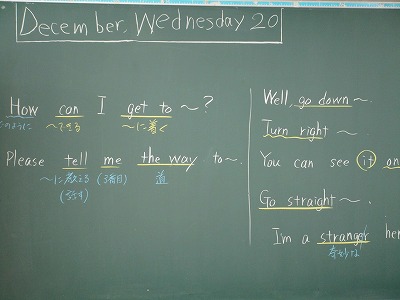 December, Wednesday 20
How can I get to ～?
このように ～できる ～に着く
Please tell me the way to～.
～に教える (3番目) 道
(話す)
Well, go down ～.
Turn right ～
You can see it on
Go straight ～.
I'm a stranger her
奇妙な